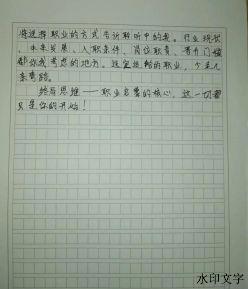 将选择职业的方式告诉聆听中的我。行业现状
、未来发展、入职条件、岗位职责、晋升门槛
都你我考虑的地方。选定
的职业，少走几
条弯路。
终局思维——职业名著的核心，这一切都
只是你的开始！
水印文字